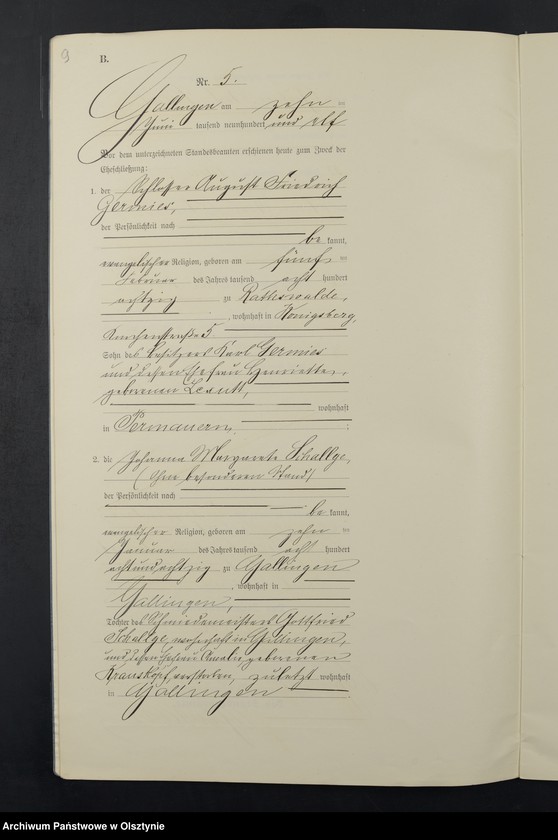 9
B.
Nr. 5.
Gallingen am zehn ten
Juni tausend neunhundert und elf
Vor dem unterzeichneten Standesbeamten erschienen heute zum Zweck der
Eheschließung:
1. der Schlosser August Friedrich
Germies,
der Persönlichkeit nach
be kannt,
evangelischer Religion, geboren am fünf ten
Februar des Jahres tausend acht hundert
achtzig zu
, wohnhaft in Königsberg,
5
Sohn des Besitzers Karl Germies
und dessen Ehefrau Henriette,
geborenen
wohnhaft
in Permauern,
;
2. die Johanna Margarete Schallge,
(ohne besonderen Stand)
der Persönlichkeit nach
be kannt,
evangelischer Religion, geboren am zehn ten
Januar des Jahres tausend acht hundert
achtundachtzig zu Gallingen
, wohnhaft in
Gallingen,
Tochter des Schmiedemeisters Gottfried
Schallge, wohnhaft in Gallingen,
und dessen Ehefrau geborenen
Krauskopf, verstorben, zuletzt wohnhaft
in Gallingen
Archiwum Państwowe w Olsztynie